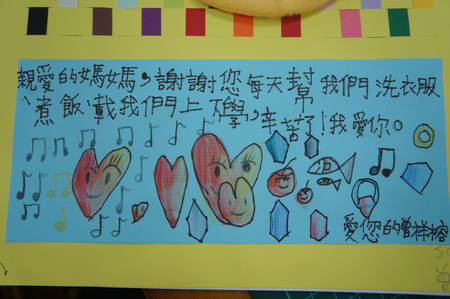 親愛的媽媽，謝謝您每天幫我們洗衣服
、煮飯、載我們上下學，辛苦了！我愛你。
愛您的曾祥榕